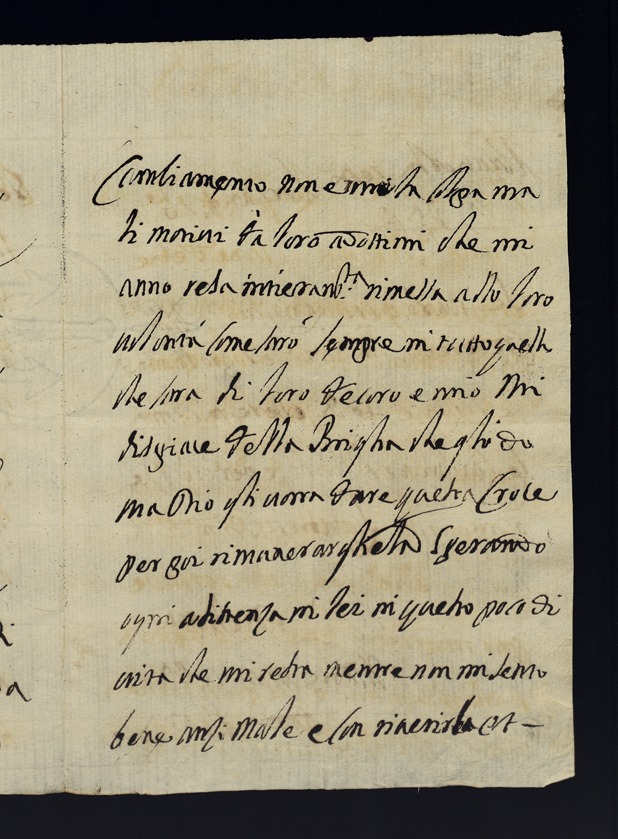 Cambiamento non e mia la colpa ma
li motivi da loro adottimi che mi
anno resa intieram.te rimessa alla loro
volontà come sarò sempre in tutto quella
che sara di loro decoro e mio Mi
dispiace della Brigha che gli do
ma Dio gli vorra dare questa Croce
per poi rimunerarghela Sperando
ogni asistenza in lei in questo poco di
vita che mi resta mentre non mi sento
bene anzi Male e con riverirla et –